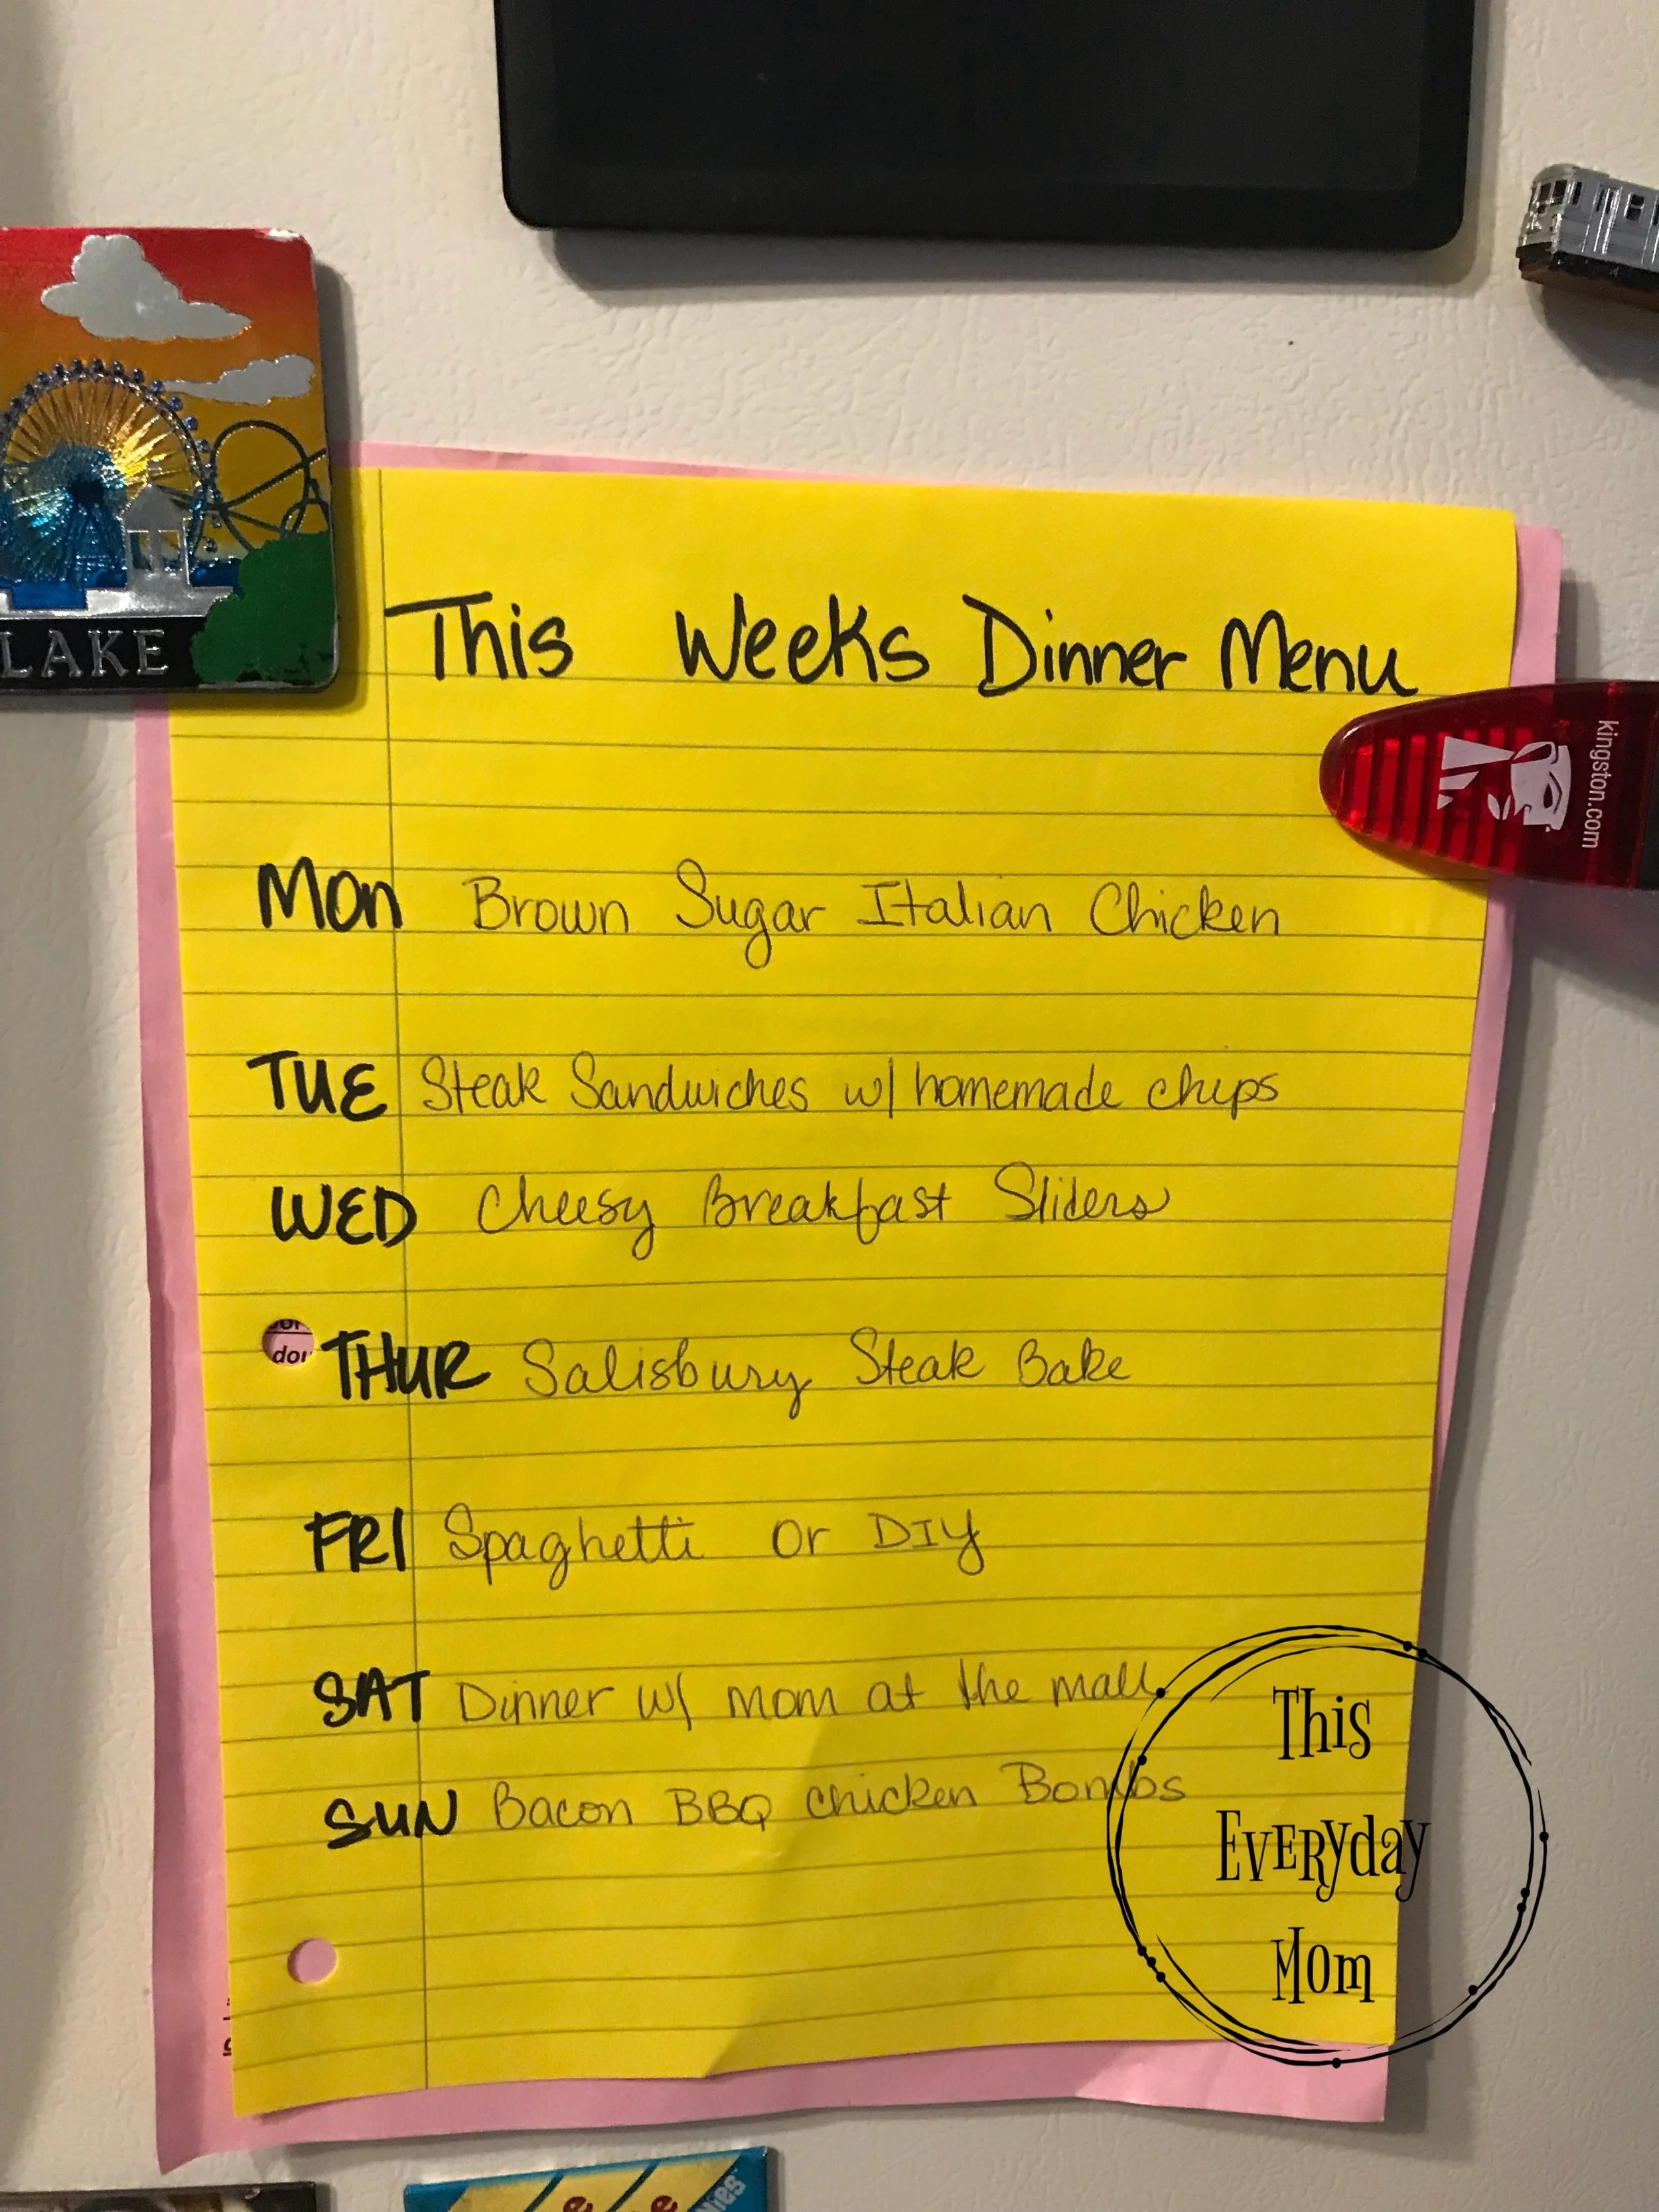 LAKE
This Weeks Dinner Menu
kingston.com
Mon Brown Sugar Italian Chicken
TUE Steak Sandwiches w/ homemade chips
WED Cheesy Breakfast Sliders
dou
THUR Salisbury Steak Bake
FRI Spaghetti or DIY
SAT Dinner w/ mom at the mall
SUN Bacon BBQ Chicken Bombs
This
Everyday
Mom